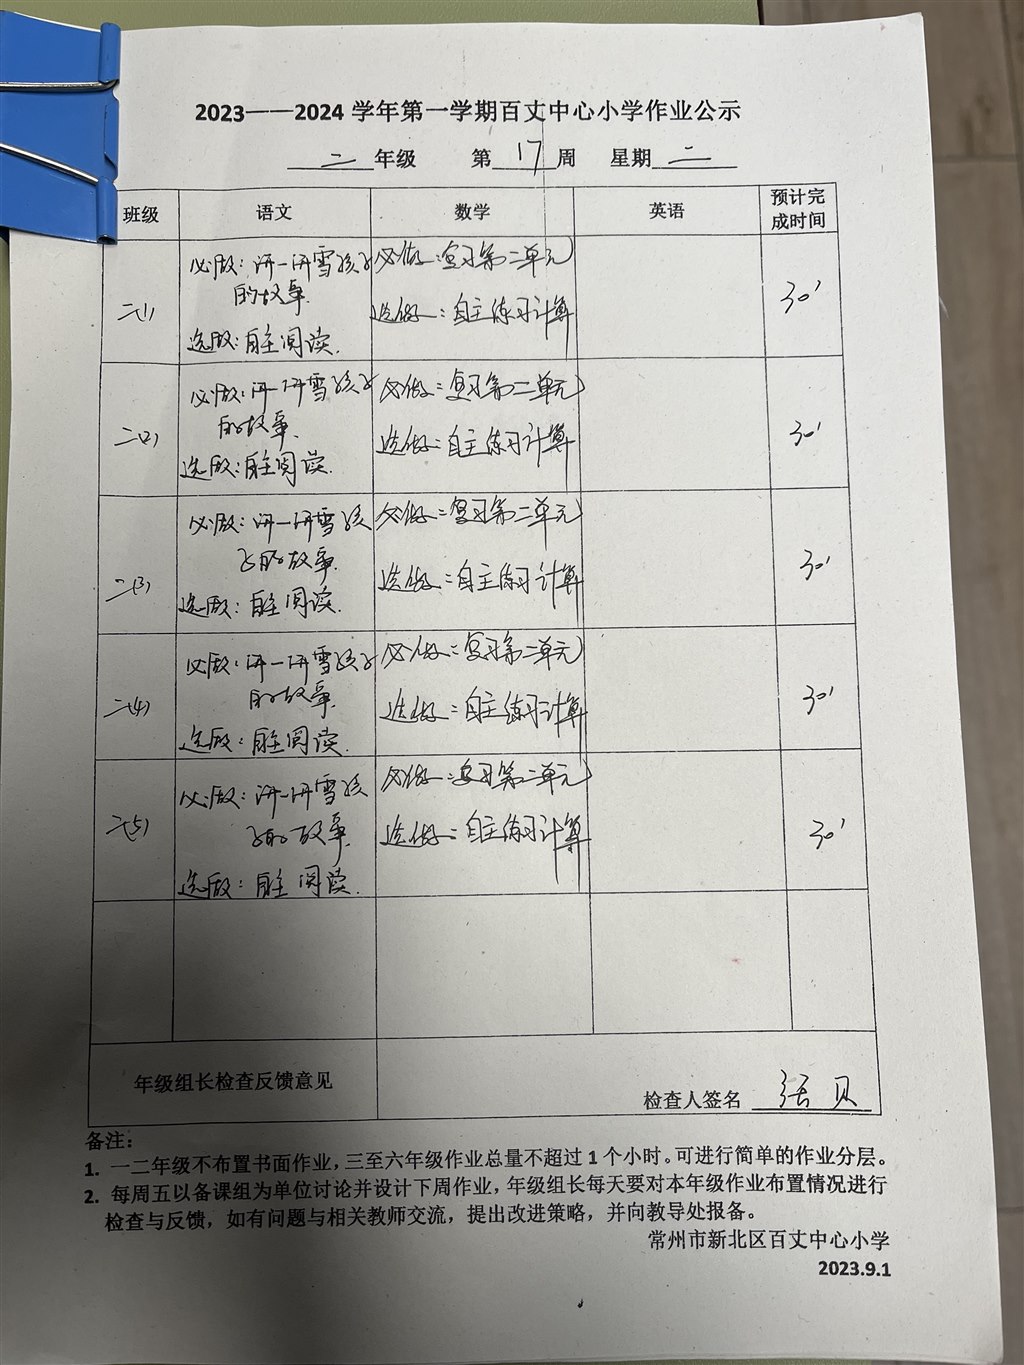 2023——2024 学年第一学期百丈中心小学作业公示
二 年级 第 17 周 星期 二
班级 语文 数学 英语 预计完成时间
二(1)
必做：讲一讲雪孩子
的故事.
选做：自主阅读.
必做：复习第二单元
选做：自主练习计算
30'
二(2)
必做：讲一讲雪孩子
的故事.
选做：自主阅读.
必做：复习第二单元
选做：自主练习计算
30'
二(3)
必做：讲一讲雪孩
子的故事.
选做：自主阅读.
必做：复习第二单元
选做：自主练习计算
30'
二(4)
必做：讲一讲雪孩子
的故事.
选做：自主阅读.
必做：复习第二单元
选做：自主练习计算
30'
二(5)
必做：讲一讲雪孩
子的故事.
选做：自主阅读.
必做：复习第二单元
选做：自主练习计算
30'
年级组长检查反馈意见
检查人签名 张贝
备注：
1. 一二年级不布置书面作业，三至六年级作业总量不超过 1 个小时。可进行简单的作业分层。
2. 每周五以备课组为单位讨论并设计下周作业，年级组长每天要对本年级作业布置情况进行
检查与反馈，如有问题与相关教师交流，提出改进策略，并向教导处报备。
常州市新北区百丈中心小学
2023.9.1